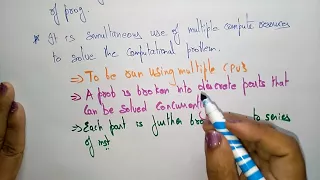 of prog.
* It is simultaneous use of multiple compute resources
to solve the computational problem.
⇒ To be run using multiple CPUs
⇒ A prob is broken into discrete parts that
can be solved concurrently
⇒ Each part is further to series
of inst